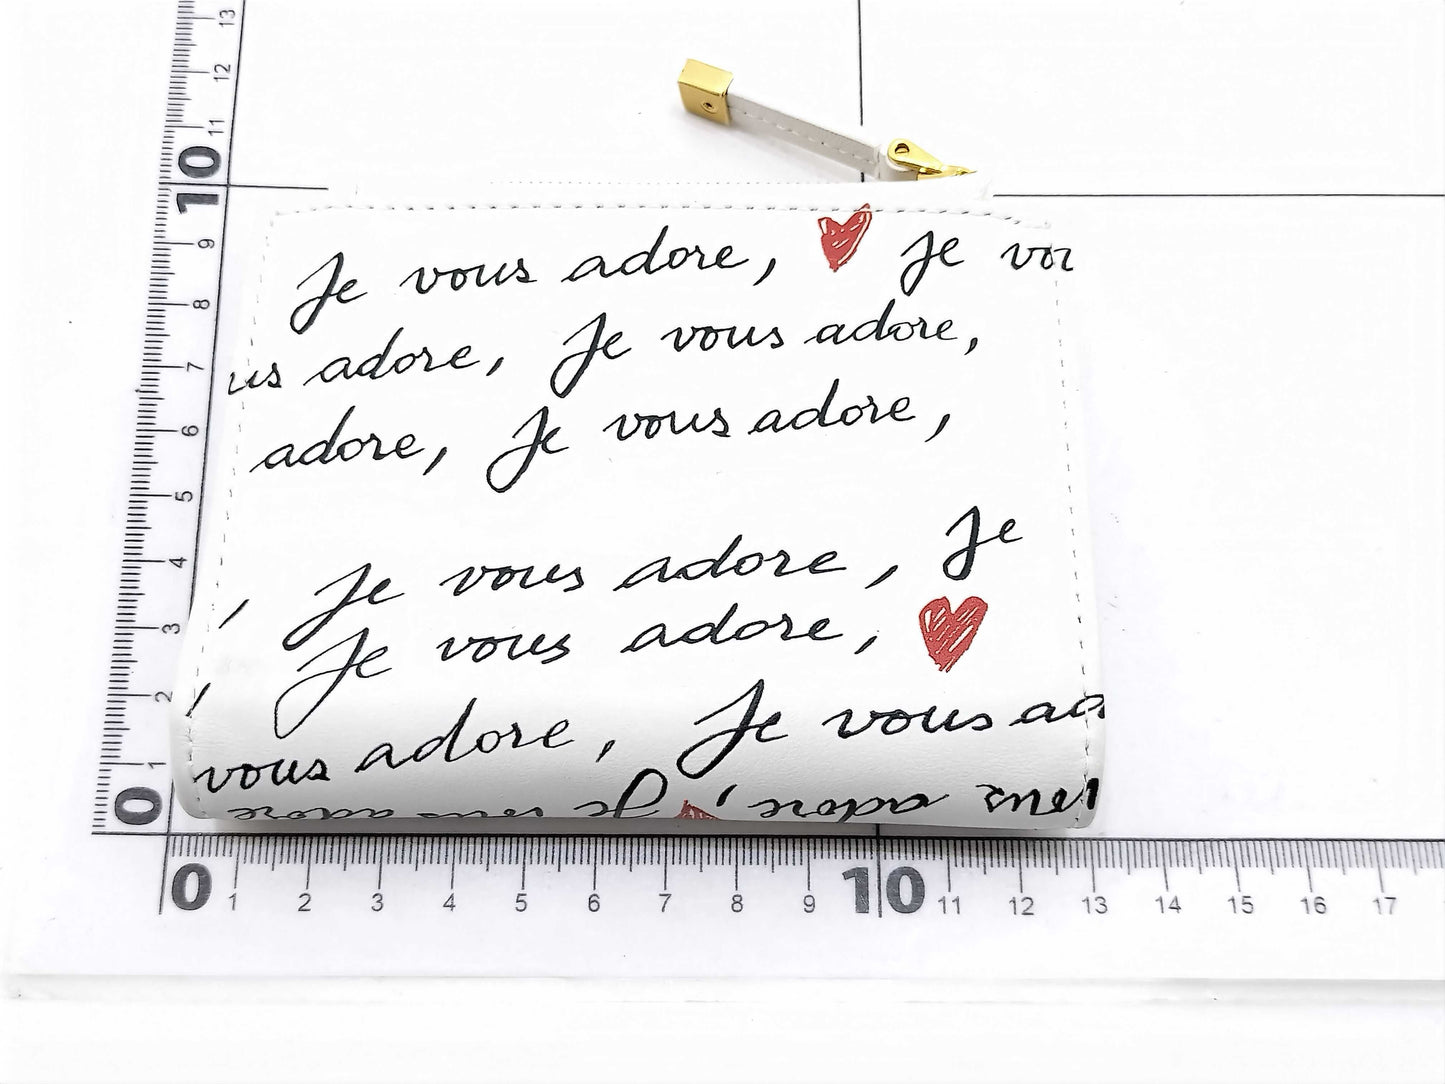 13
12
11
10
9
8
7
6
5
4
3
2
1
0
Je vous adore, Je vou
us adore, Je vous adore,
adore, Je vous adore,
, Je vous adore, Je
, Je vous adore,
vous adore, Je vous ad
vous adore, Je vous adore
0 1 2 3 4 5 6 7 8 9 10 11 12 13 14 15 16 17